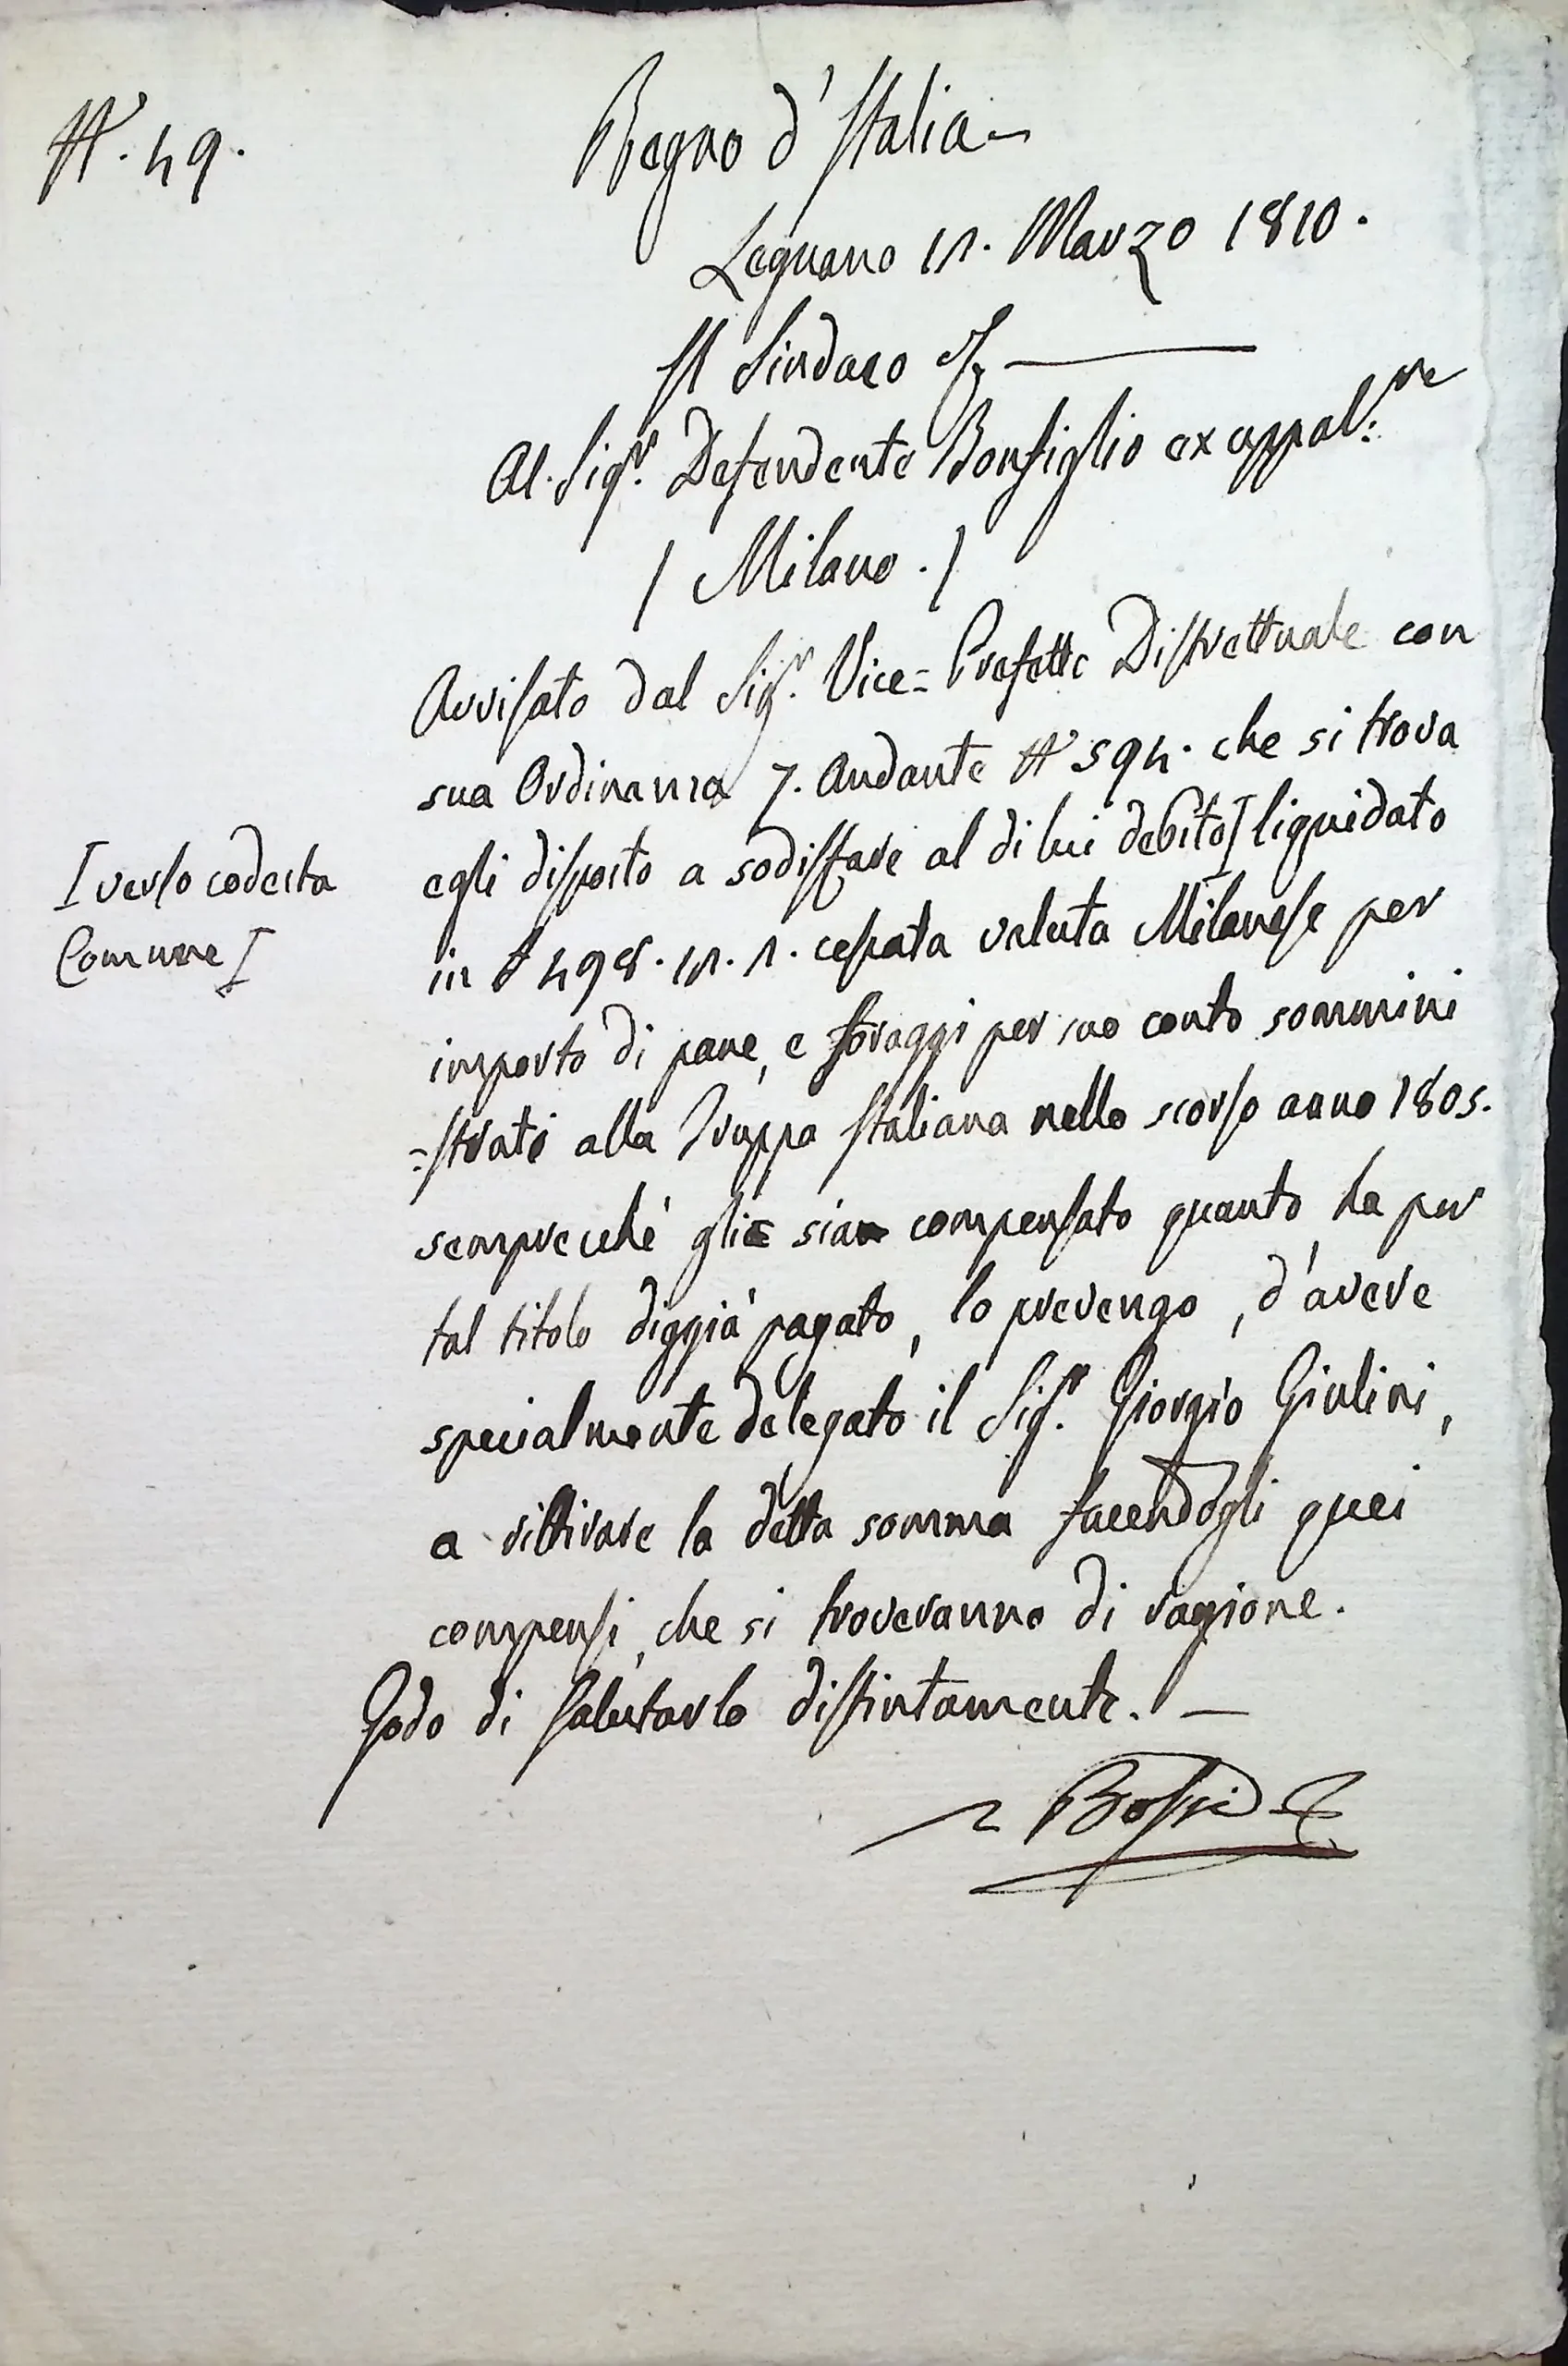 N. 49.
Regno d'Italia
Legnano 12. Marzo 1810.
Il Sindaco
Al Sig.r Defendente Bonfiglio ex appal:re
/ Milano. /
Avvisato dal Sig.r Vice= Prefetto Distrettuale con
sua Ordinanza 7. Andante N 594. che si trova
egli disposto a sodisfare al di lui debito I liquidato
I verso codesta
Comune I
in £ 498. 12. 2. cessata valuta Milanese per
importo di pane, e foraggi per suo conto sommini
=strati alla Truppa Italiana nello scorso anno 1805.
semprecché gli sia compensato quanto ha per
tal titolo diggià pagato, lo prevengo, d'avere
specialmente delegato il Sig.r Giorgio Giulini,
a rittirare la detta somma facendogli quei
compensi, che si troveranno di ragione.
Godo di salutarlo distintamente. —
Bossi